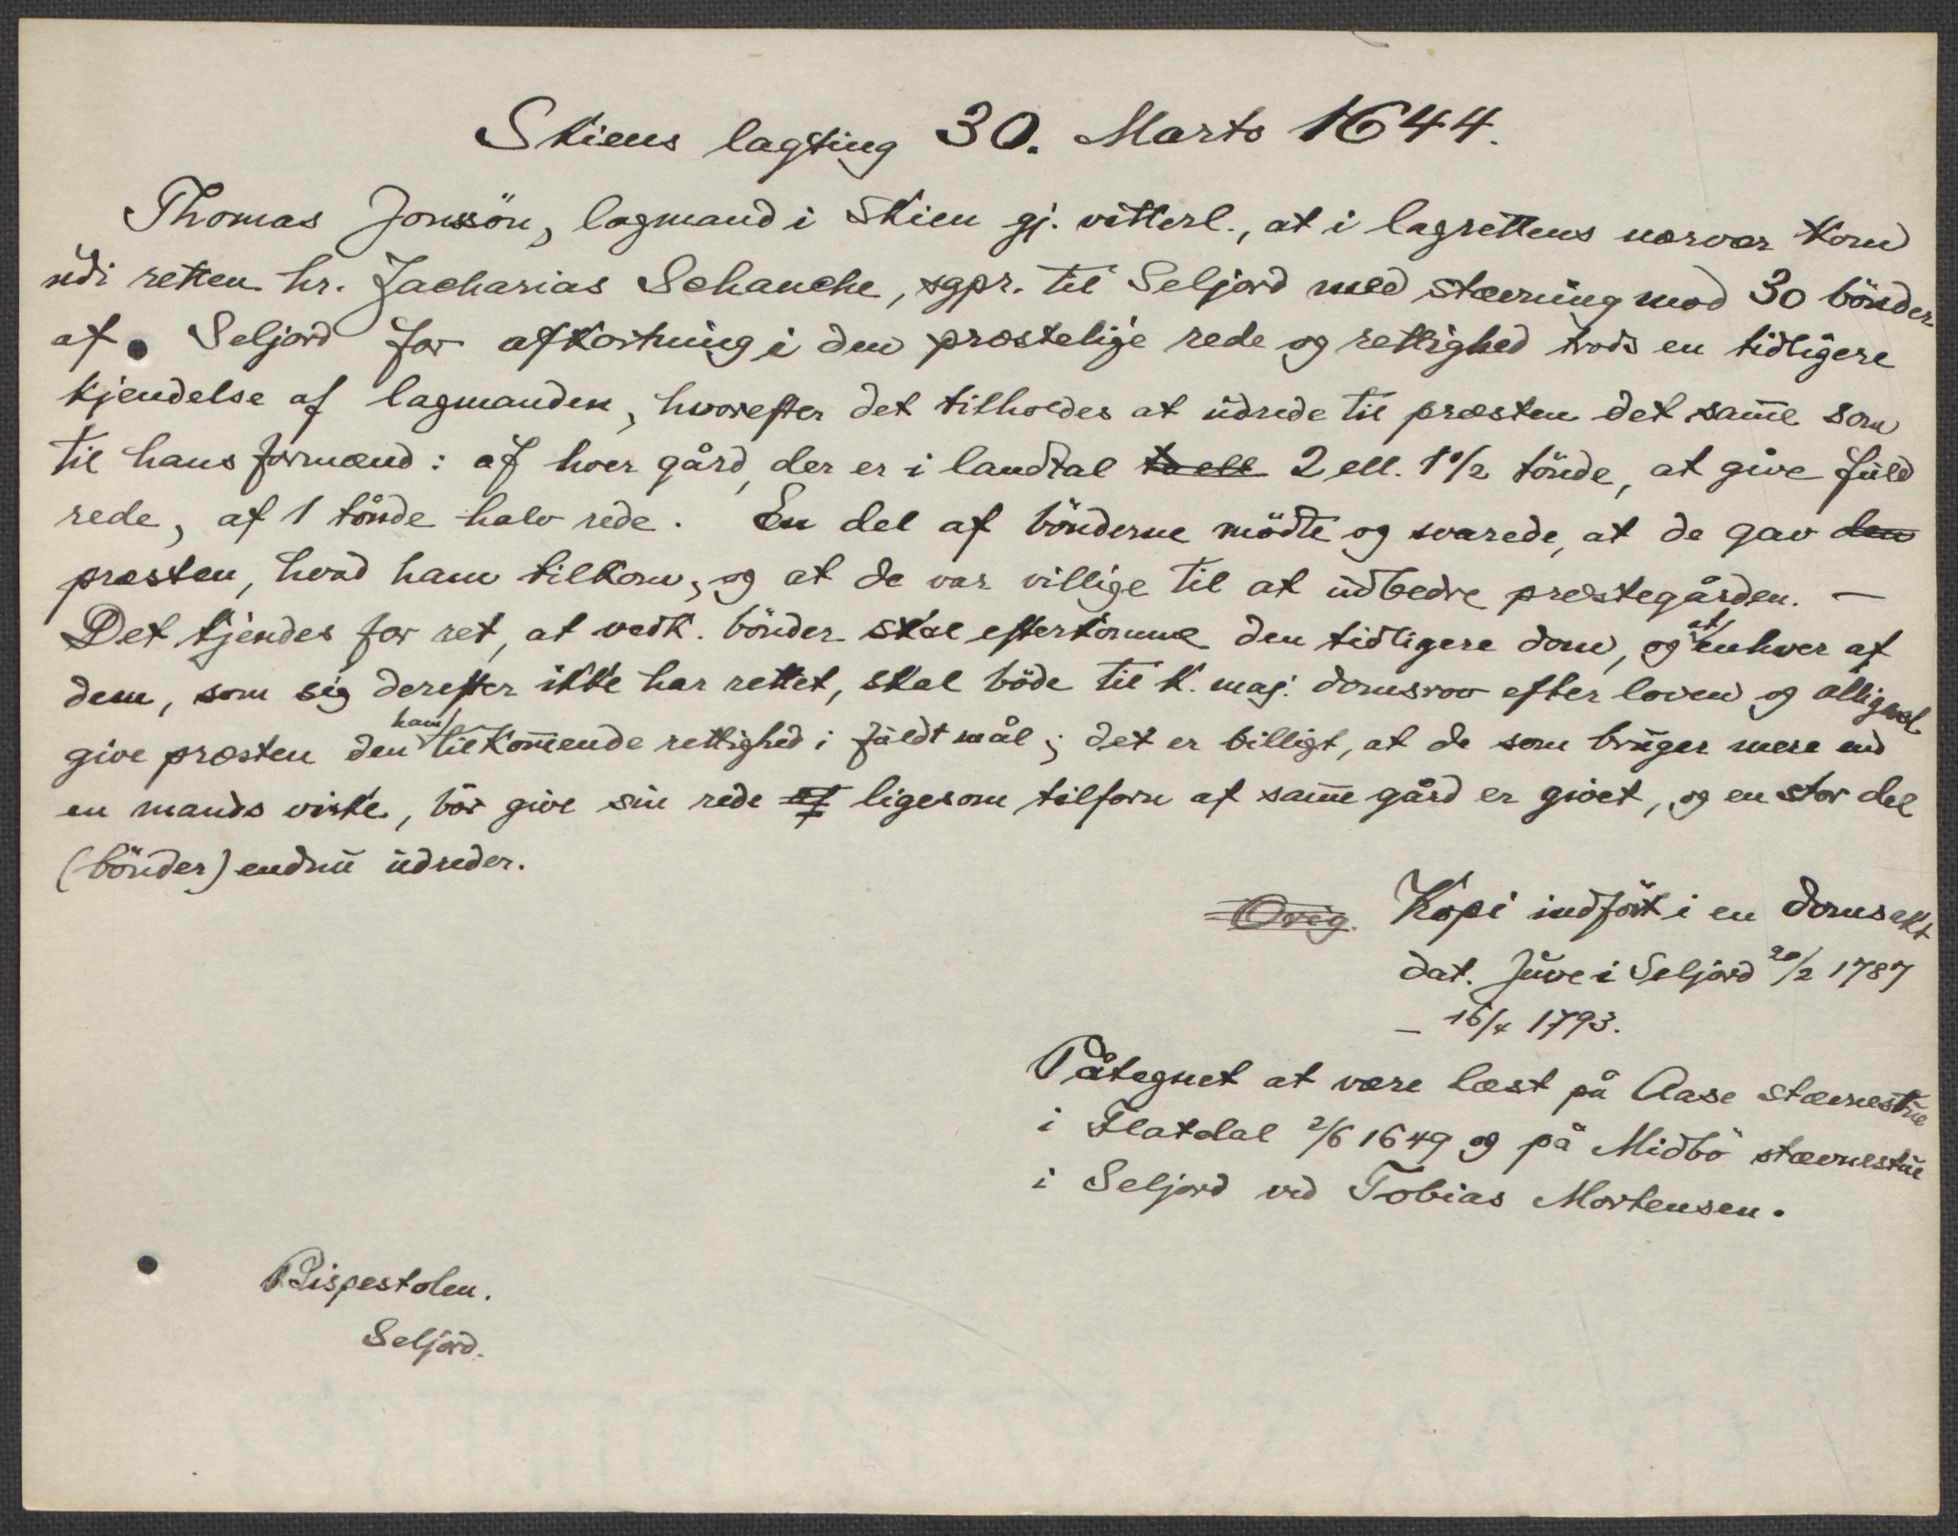 Skiens lagting 30. Marts 1644.
Thomas Jonssön, lagmand i Skien gj. vitterl., at i lagrettens nærvær kom
udi retten hr. Zacharias Schanche, sgpr. til Seljord med stævning mod 30 bönder
af Seljord for afkortning i den præstelige rede og rettighed trods en tidligere
kjendelse af lagmanden, hvorefter det tilholdes at udrede til præsten det samme som
til hans formænd: af hver gård, der er i landtal to ell. 2 ell. 1 1/2 tönde, at give fuld
rede, af 1 tönde halv rede. En del af bönderne mödte og svarede, at de gav den
præsten, hvad ham tilkom, og at de var villige til at udbedre præstegården. —
Det kjendes for ret, at vedk. bönder skal efterkomme den tidligere dom, og at enhver af
dem, som sig derefter ikke har rettet, skal böde til k. maj. domsrov efter loven og alligevel
give præsten den ham tilkommende rettighed i fuldt mål; det er billigt, at de som bruger mere end
en mands viske, bör give sin rede af ligesom tilforn af samme gård er givet, og en stor del
(bönder) endnu udreder.
Orig. Kopi indfört i en domsakt
dat. Juve i Seljord 20/2 1787
— 16/4 1793.
Påtegnet at være læst på Aase stævnestue
i Flatdal 2/6 1649 og på Midbö stævnestue
i Seljord ved Tobias Mortensen.
Bispestolen.
Seljord.